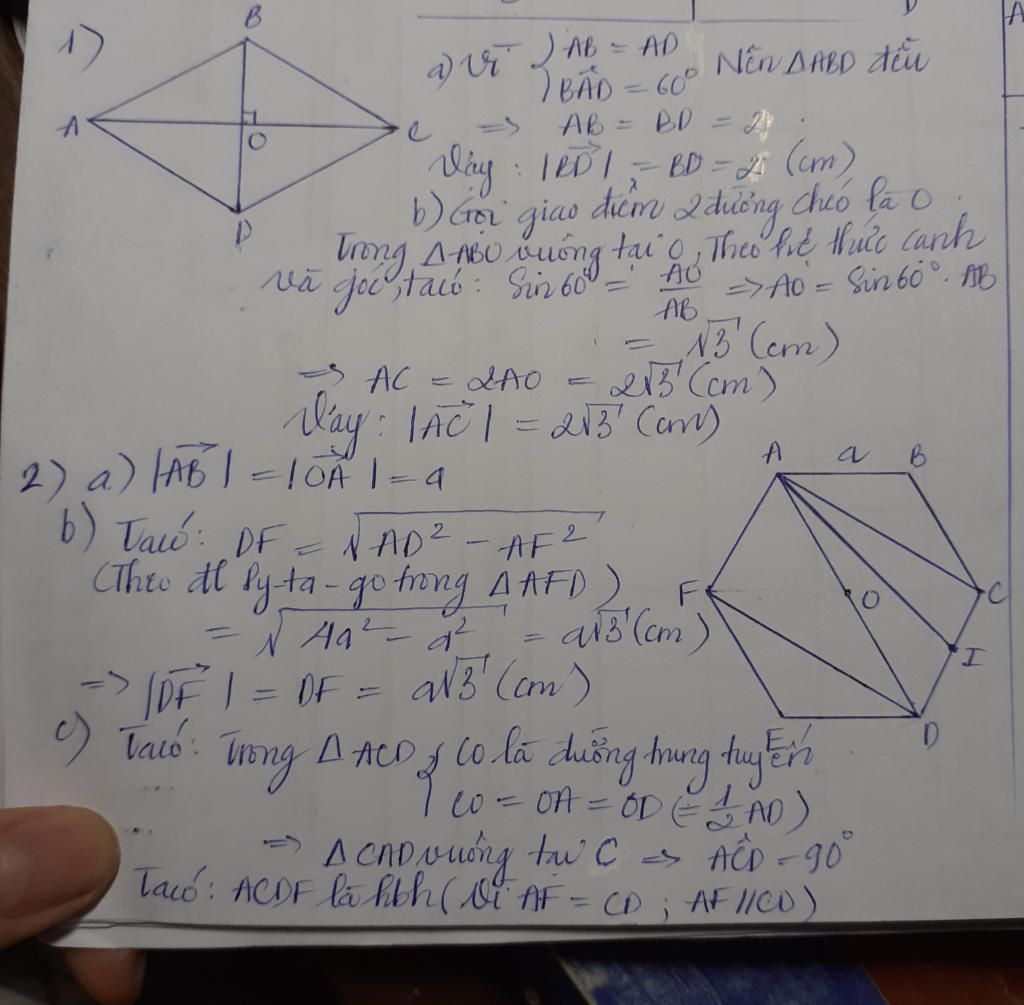 1)
B
A
O
C
D
a) Vì { AB = AD
BÂD = 60° Nên ΔABD đều
=> AB = BD = 2
Vậy : |BD| = BD = 2 (cm)
b) Gọi giao điểm 2 đường chéo là O
Trong ΔABO vuông tại O, Theo hệ thức cạnh
và góc, ta có : Sin60° = AO/AB => AO = Sin60° . AB
= √3 (cm)
=> AC = 2AO = 2√3 (cm)
Vậy : |AC| = 2√3 (cm)
2) a) |AB| = |OA| = a
b) Ta có : DF = √AD² - AF²
(Theo đl Py-ta-go trong ΔAFD)
= √4a² - a² = a√3 (cm)
=> |DF| = DF = a√3 (cm)
A
a
B
F
O
C
I
D
E
c) Ta có : Trong ΔACD { CO là đường trung tuyến
CO = OA = OD (= 1/2 AD)
=> ΔCAD vuông tại C => AĈD = 90°
Ta có : ACDF là hbh (Vì AF = CD ; AF // CD)
A